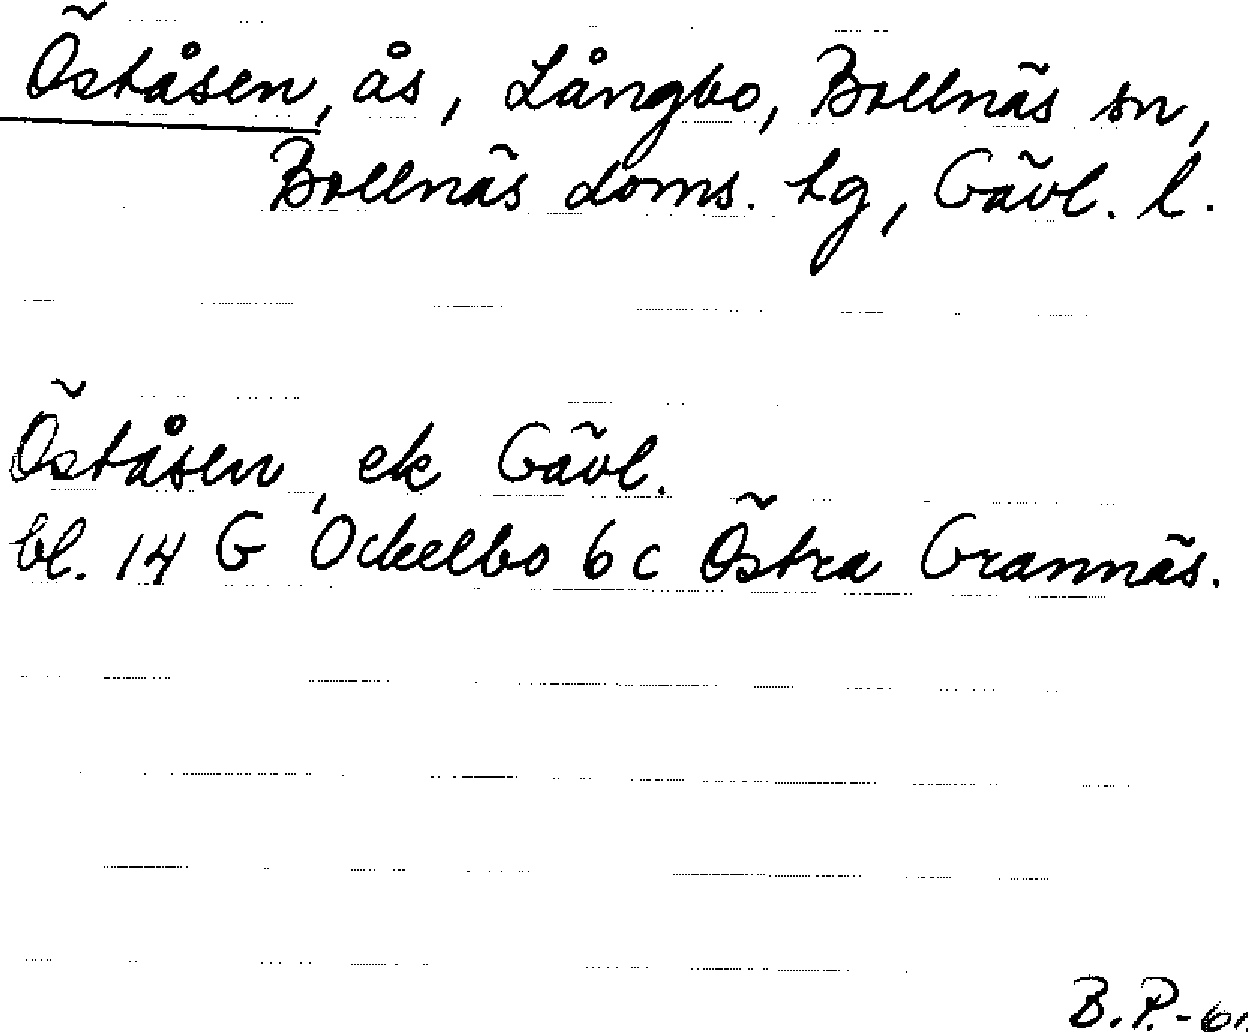 Öståsen, ås, Långbo, Bollnäs sn,
Bollnäs doms. tg, Gävl. l.
Öståsen, ek Gävl.
bl. 14 G Ockelbo 6 c Östra Grannäs.
B.P.-